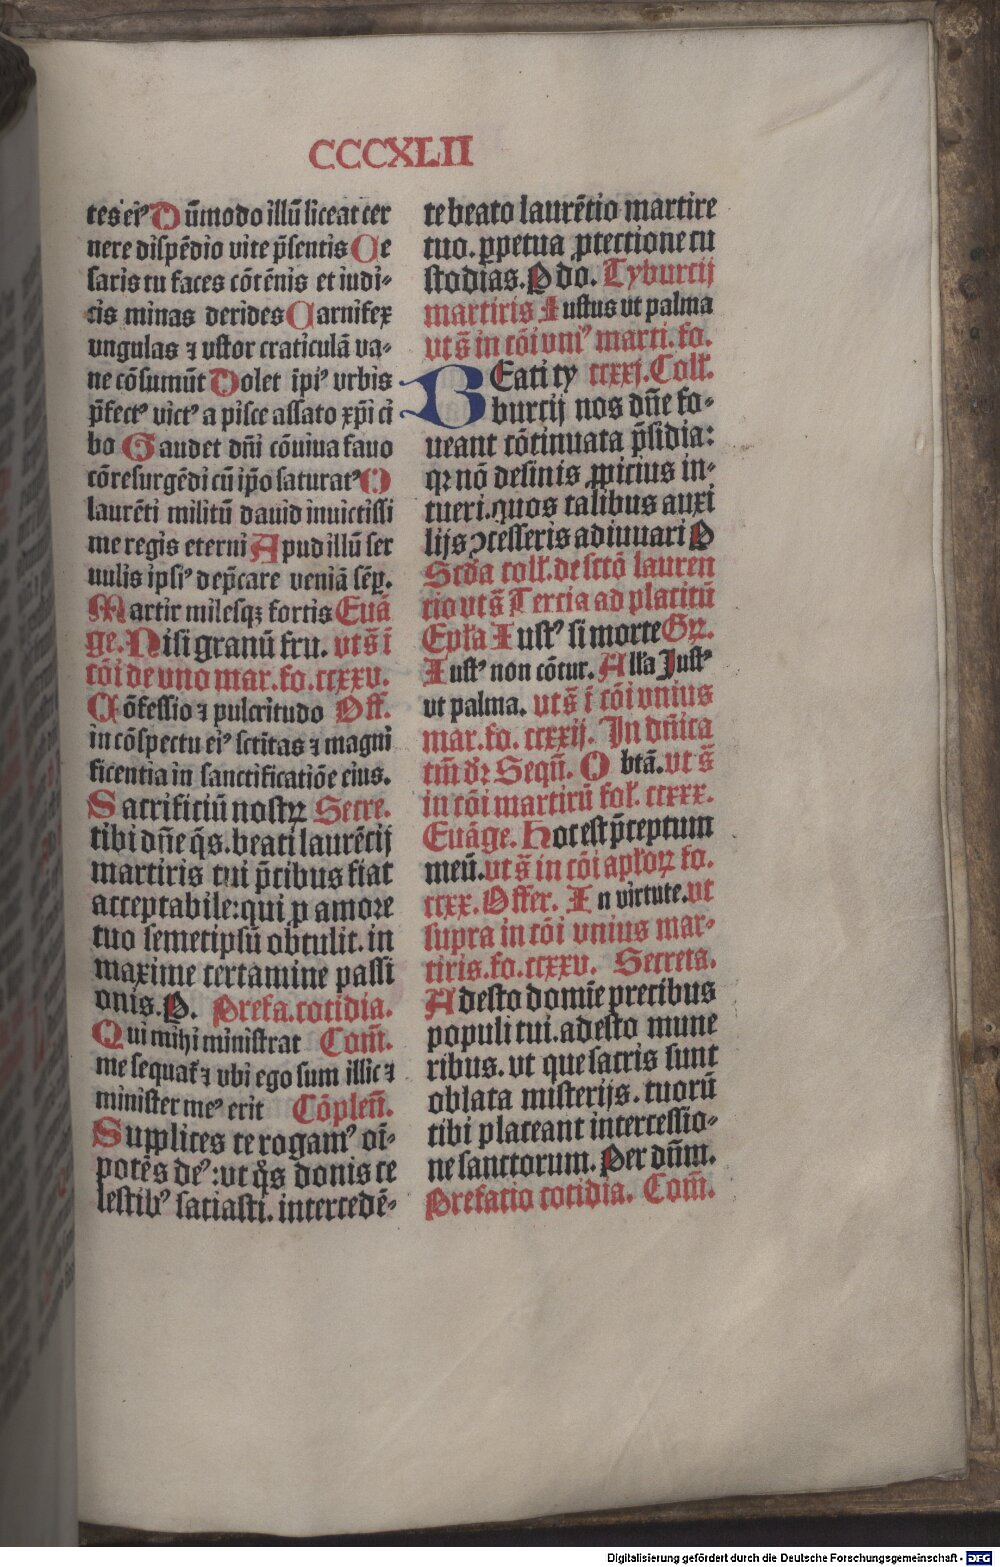 CCCXLII
tes eiꝰ Dūmodo illū liceat cer
nere dispēdio vite p̄sentis Ce
saris tu faces cōtēnis et iudi⸗
cis minas derides Carnifex
vngulas ⁊ vstor craticulā va⸗
ne cōsumūt Dolet īpiꝰ vrbis
p̄fectꝰ victꝰ a pisce assato xp̄i ci
bo Gaudet dn̄i cōuiua fauo
cōresurgēdi cū ip̄o saturatꝰ O
laurēti militū dauid inuictissi
me regis eterni Apud illū ser
uulis ipsiꝰ dep̄care veniā sēꝑ.
Martir milesqꝫ fortis Euā
ge. Nisi granū fru. vt s̄ ī
cōi de vno mar. fo. ccxxv.
Cōfessio ⁊ pulcritudo Off.
in cōspectu eiꝰ sctītas ⁊ magni
ficentia in sanctificatiōe eius.
Sacrificiū nostrꝫ Secre.
tibi dn̄e q̄s. beati laurētij
martiris tui p̄cibus fiat
acceptabile: qui ꝓ amore
tuo semetipsū obtulit. in
maxime certamine passi
onis. P. Prefa. cotidia.
Qui mihi ministrat Com̄.
me sequat̄ ⁊ vbi ego sum illic ⁊
minister meꝰ erit Cōplen̄.
Supplices te rogamꝰ oī⸗
potēs deꝰ: vt q̄s donis ce
lestibꝰ satiasti. intercedē⸗
te beato laurētio martire
tuo. ꝑpetua ꝓtectione cu
stodias. P do. Tyburcij
martiris Iustus vt palma
vt s̄ in cōi vniꝰ marti. fo.
BEati ty ccxxj. Coll̄.
burcij nos dn̄e fo⸗
ueant cōtinuata p̄sidia:
qꝛ nō desinis ꝓpicius in⸗
tueri. quos talibus auxi
lijs ↄcesseris adiuuari P
Scd̄a coll̄. de sctō lauren
tio vt s̄ Tercia ad placitū
Ep̄la Iustꝰ si morte Gꝛ.
Iustꝰ non cōtur. All̄a Justꝰ
vt palma. vt s̄ ī cōi vnius
mar. fo. ccxxij. In dn̄ica
tm̄ dꝛ Seqū. O btā. vt s̄
in cōi martirū fol̄. ccxxx.
Euāge. Hoc est p̄ceptum
meū. vt s̄ in cōi ap̄lorꝫ fo.
ccxx. Offer. In virtute. vt
supra in cōi vnius mar⸗
tiris. fo. ccxxv. Secreta.
Adesto domīe precibus
populi tui. adesto mune
ribus. vt que sacris sunt
oblata misterijs. tuorū
tibi placeant intercessio⸗
ne sanctorum. Per dn̄m.
Prefatio cotidia. Com̄.
Digitalisierung gefördert durch die Deutsche Forschungsgemeinschaft - DFG